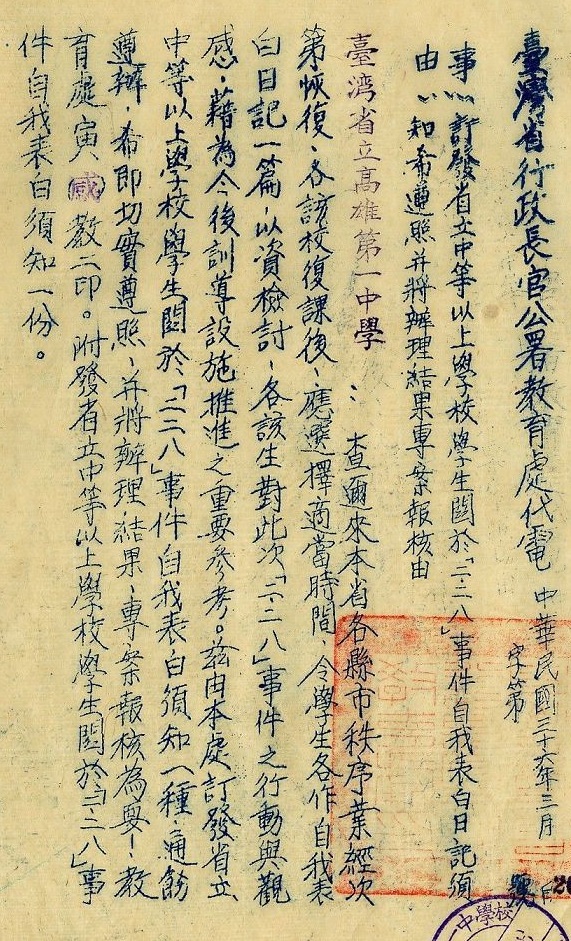 臺灣省行政長官公署教育處代電 中華民國三十六年三月 日
字第 號
事:訂發省立中等以上學校學生關於「二.二八」事件自我表白日記須
由:知希遵照并將辦理結果專案報核由
臺湾省立高雄第一中學:查邇來本省各縣市秩序業經次
第恢復、各該校復課後、應選擇適當時間、令學生各作自我表
白日記一篇、以資檢討、各該生對此次「二.二八」事件之行動與觀
感、藉為今後訓導設施推進之重要參考。茲由本處訂發省立
中等以上學校學生關於「二二八」事件自我表白須知一種、通飭
遵辦、希即切實遵照、并將辦理結果、專案報核為要!教
育處寅 教二印。附發省立中等以上學校學生關於「二.二八」事
件自我表白須知一份。
中學校